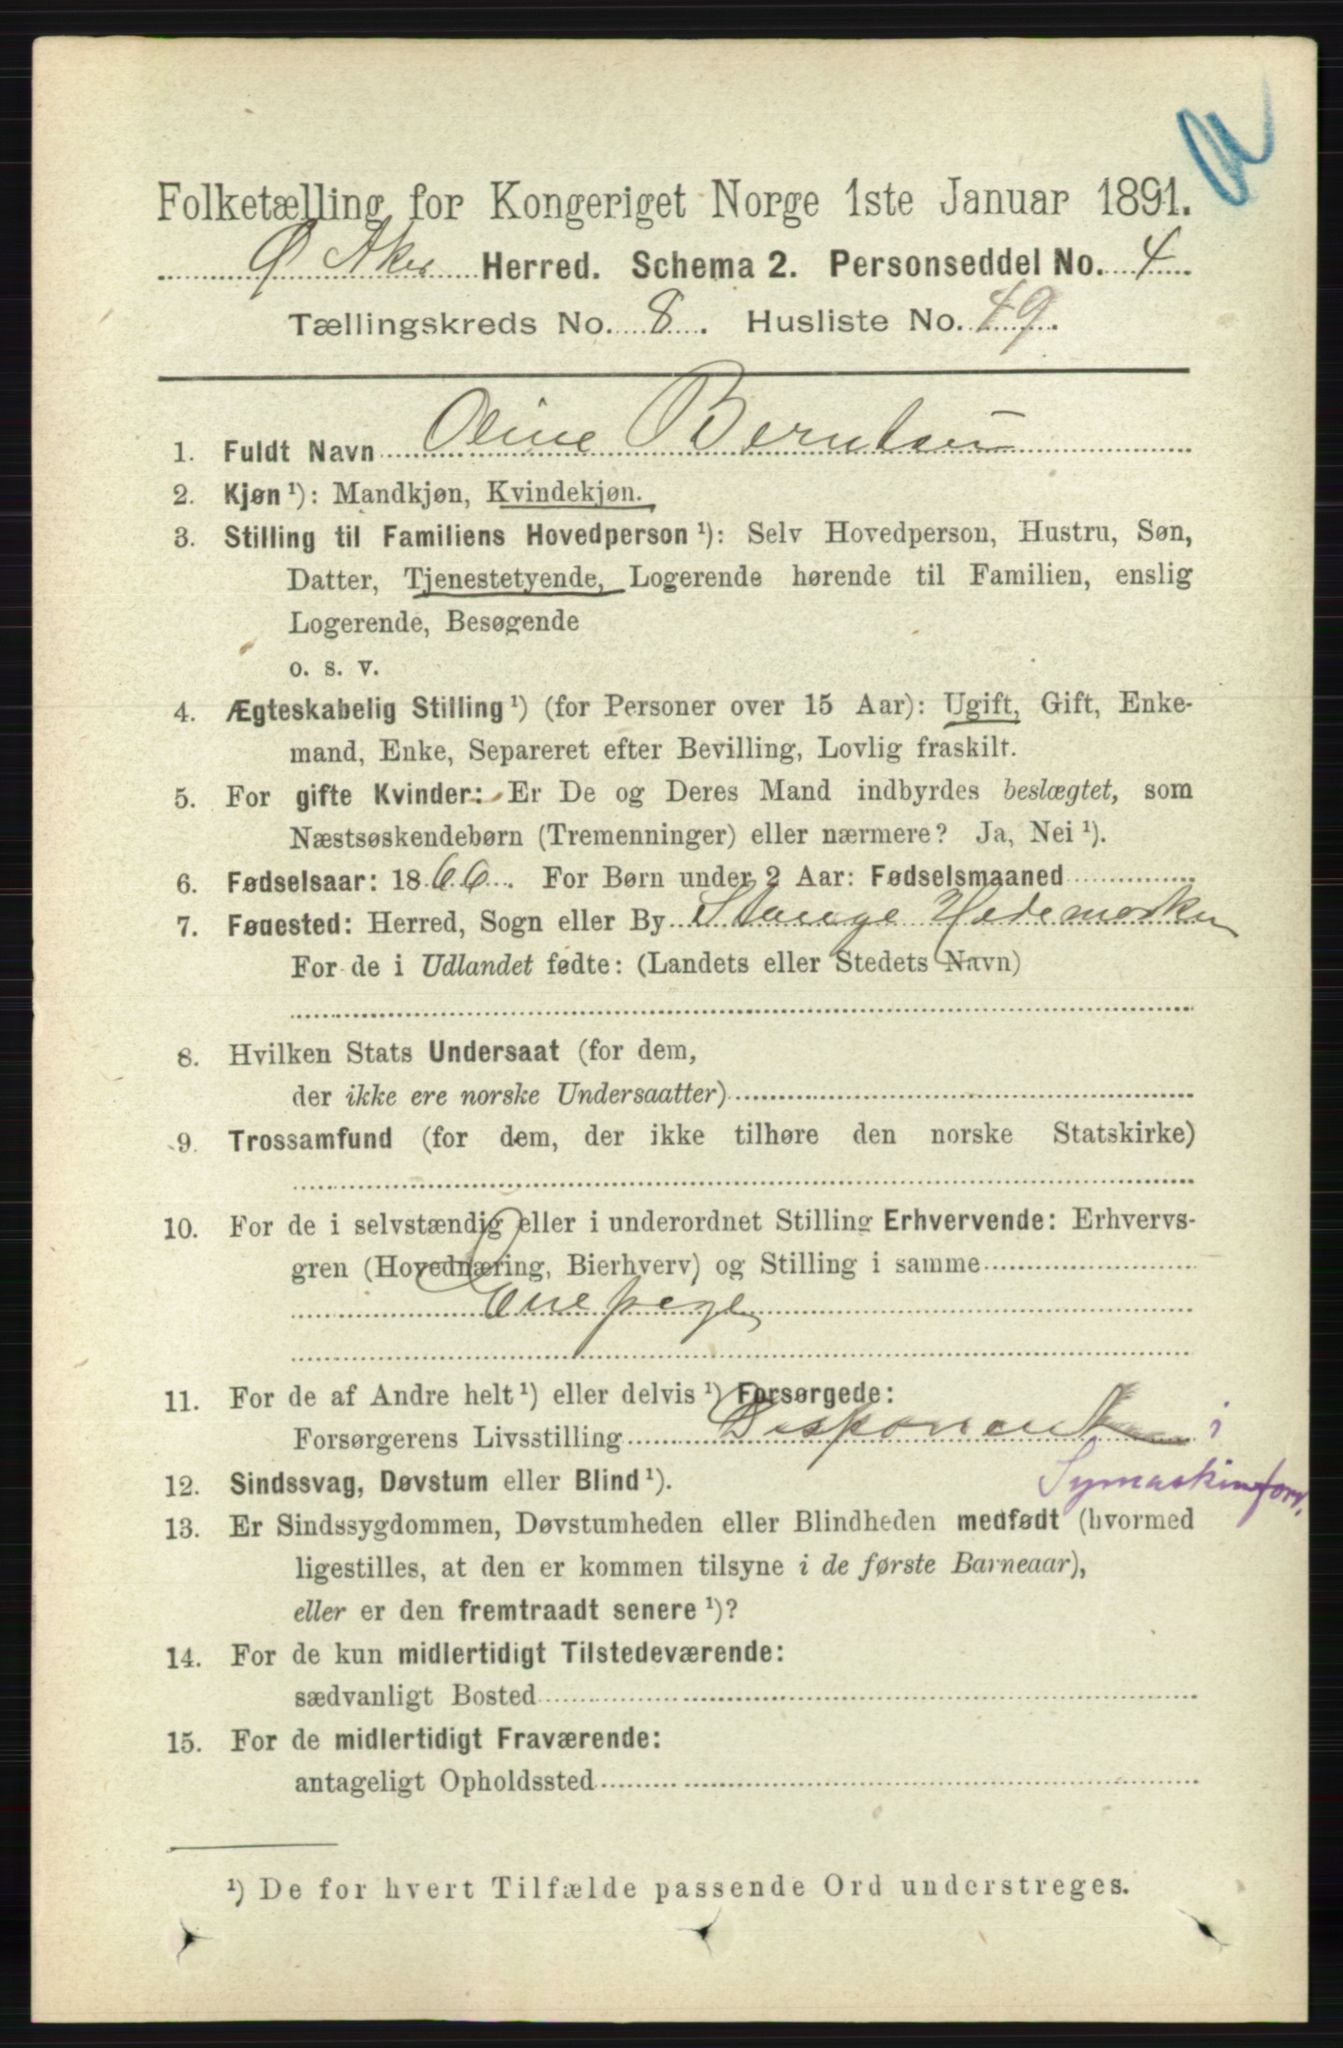 a
Folketælling for Kongeriget Norge 1ste Januar 1891.
Ø Aker Herred. Schema 2. Personseddel No. 4
Tællingskreds No. 8. Husliste No. 49.
1. Fuldt Navn Oline Berntsen
2. Kjøn ¹): Mandkjøn, Kvindekjøn.
3. Stilling til Familiens Hovedperson ¹): Selv Hovedperson, Hustru, Søn,
Datter, Tjenestetyende, Logerende hørende til Familien, enslig
Logerende, Besøgende
o. s. v.
4. Ægteskabelig Stilling ¹) (for Personer over 15 Aar): Ugift, Gift, Enke-
mand, Enke, Separeret efter Bevilling, Lovlig fraskilt.
5. For gifte Kvinder: Er De og Deres Mand indbyrdes beslægtet, som
Næstsøskendebørn (Tremenninger) eller nærmere? Ja, Nei ¹).
6. Fødselsaar: 1866. For Børn under 2 Aar: Fødselsmaaned
7. Føuested: Herred, Sogn eller By Stange Hedemarken
For de i Udlandet fødte: (Landets eller Stedets Navn)
8. Hvilken Stats Undersaat (for dem,
der ikke ere norske Undersaatter)
9. Trossamfund (for dem, der ikke tilhøre den norske Statskirke)
10. For de i selvstændig eller i underordnet Stilling Erhvervende: Erhvervs-
gren (Hovednæring, Bierhverv) og Stilling i samme
Enepige
11. For de af Andre helt ¹) eller delvis ¹) Forsørgede:
Forsørgerens Livsstilling Disponent i
Symaskinforr.
12. Sindssvag, Døvstum eller Blind ¹).
13. Er Sindssygdommen, Døvstumheden eller Blindheden medfødt (hvormed
ligestilles, at den er kommen tilsyne i de første Barneaar),
eller er den fremtraadt senere ¹)?
14. For de kun midlertidigt Tilstedeværende:
sædvanligt Bosted
15. For de midlertidigt Fraværende:
antageligt Opholdssted
¹) De for hvert Tilfælde passende Ord understreges.